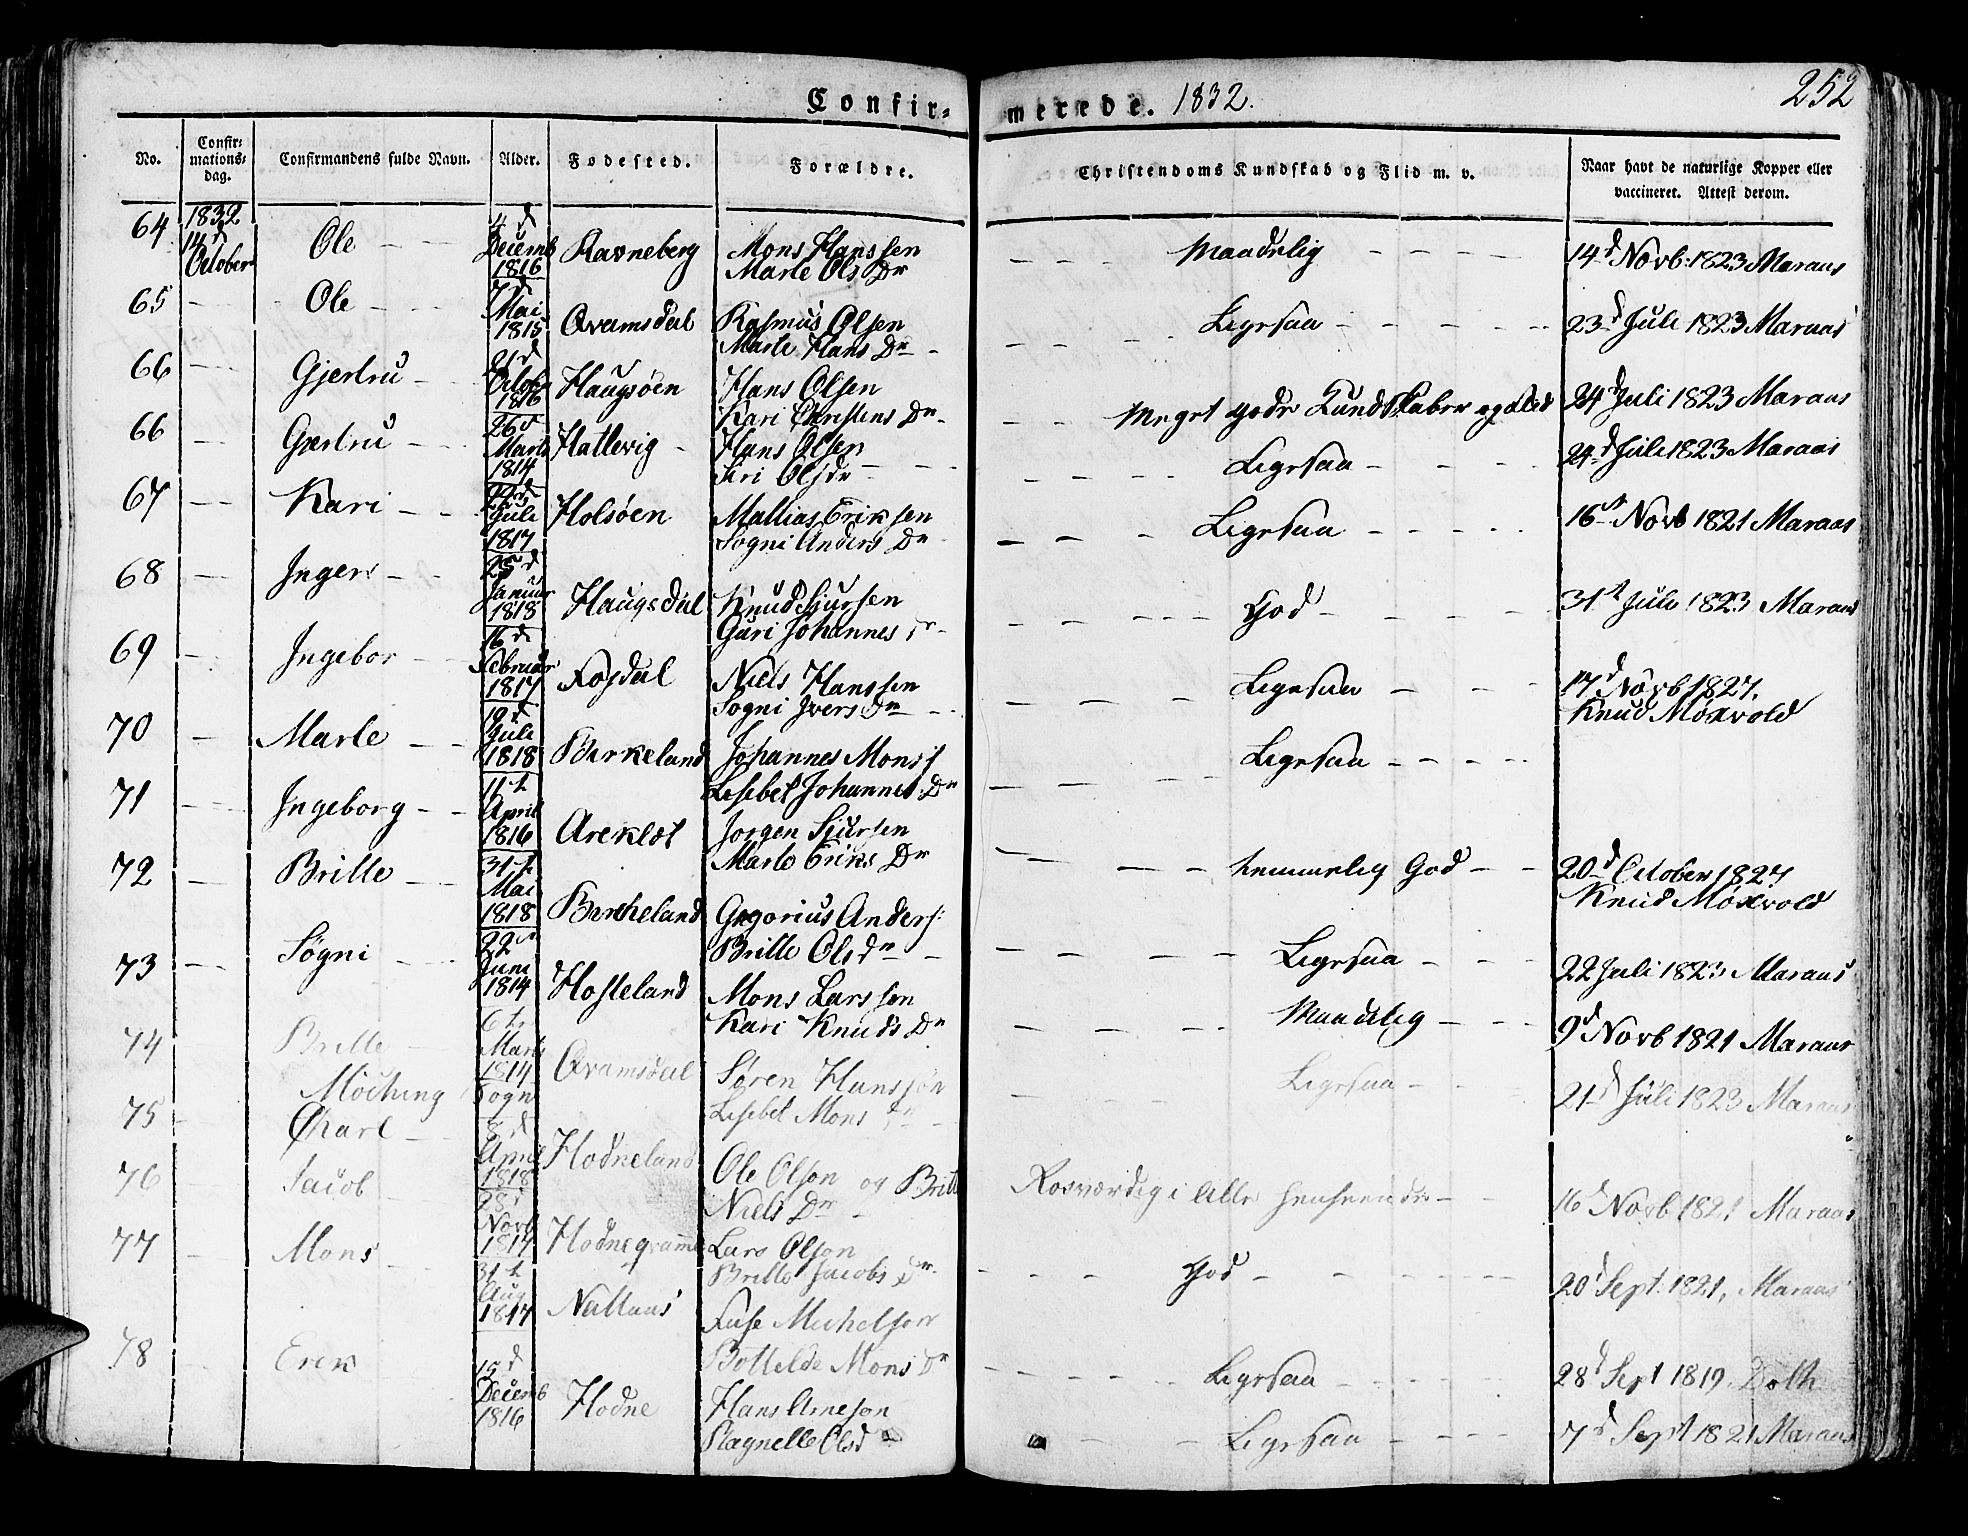 Confir-
merede. 1832.
252
No.
Confir-
mations-
dag.
Confirmandens fulde Navn.
Alder.
Fødested.
Forældre.
Christendoms Kundskab og Flid m. v.
Naar havt de naturlige Kopper eller
vaccineret. Attest derom.
64 1832 14d October Ole 4d Decemb 1816 Ravneberg Mons Hanssen Marte Ols Dr Maadelig 14d Novb: 1823 Maraas
65 Ole 7d Mai 1815 Qvamsdal Rasmus Olsen Marte Hans Dr Ligesaa 23d Juli 1823 Maraas
66 Gjertru 21d Octob 1816 Haugsöen Hans Olsen Kari Christens Dr Meget gode Kundskaber og Flid 24d Juli 1823 Maraas
66 Gjertru 26d Marts 1814 Hatlevig Hans Olsen Siri Olsdr Ligesaa 24d Juli 1823 Maraas
67 Kari Juli 1817 Holsöen Mathias Eriksen Sogni Anders Dr Ligesaa 16d Novb 1821 Maraas
68 Ingers 25d Januar 1818 Haugsdal Knud Siursen Guri Johannes Dr God 31t Juli 1823 Maraas
69 Ingebor 16d Februar 1817 Niels Hanssen Sogni Ivers Dr Ligesaa 17d Novb 1827. Knud Möxvold
70 Marte 19d Juli 1818 Birkeland Johannes Mons s Lisebet Johannes Dr Ligesaa
71 Ingeborg 11t April 1816 Areklet Jorgen Siursen Marte Eriks Dr temmelig God 20d October 1827 Knud Möxvold
72 Britte 31t Mai 1818 Birckeland Gregorius Anders: Britte Olsdr Ligesaa 22 Juli 1823 Maraas
73 Søgni 22d Juni 1814 Hosteland Mons Larssen Kari Knuds Dr Maadelig 9d Novb 1821 Maraas
74 Britte 6t Marts 1814 Sogn Qvamsdal Søren Hanssön Lisebet Mons Dr Ligesaa 21d Juli 1823 Maraas
75 Carl 8d April 1818 Hodneland Ole Olson og Britte Niels Dr Rosværdig i Alle Henseender 16d Novb 1821 Maraas
76 Jacob 28d Novb 1817 Lars Olson Britte Jacobs Dr God 20d Sept. 1821, Maraas
77 Mons 31t Aug 1817 Nattaas Michelson Bottelde Mons Dr Ligesaa 28d Sept 1819
78 Erik 15d Decemb 1816 Hodne Hans Arneson Ragnelle Olsd Ligesaa 7d Sept 1821 Maraas